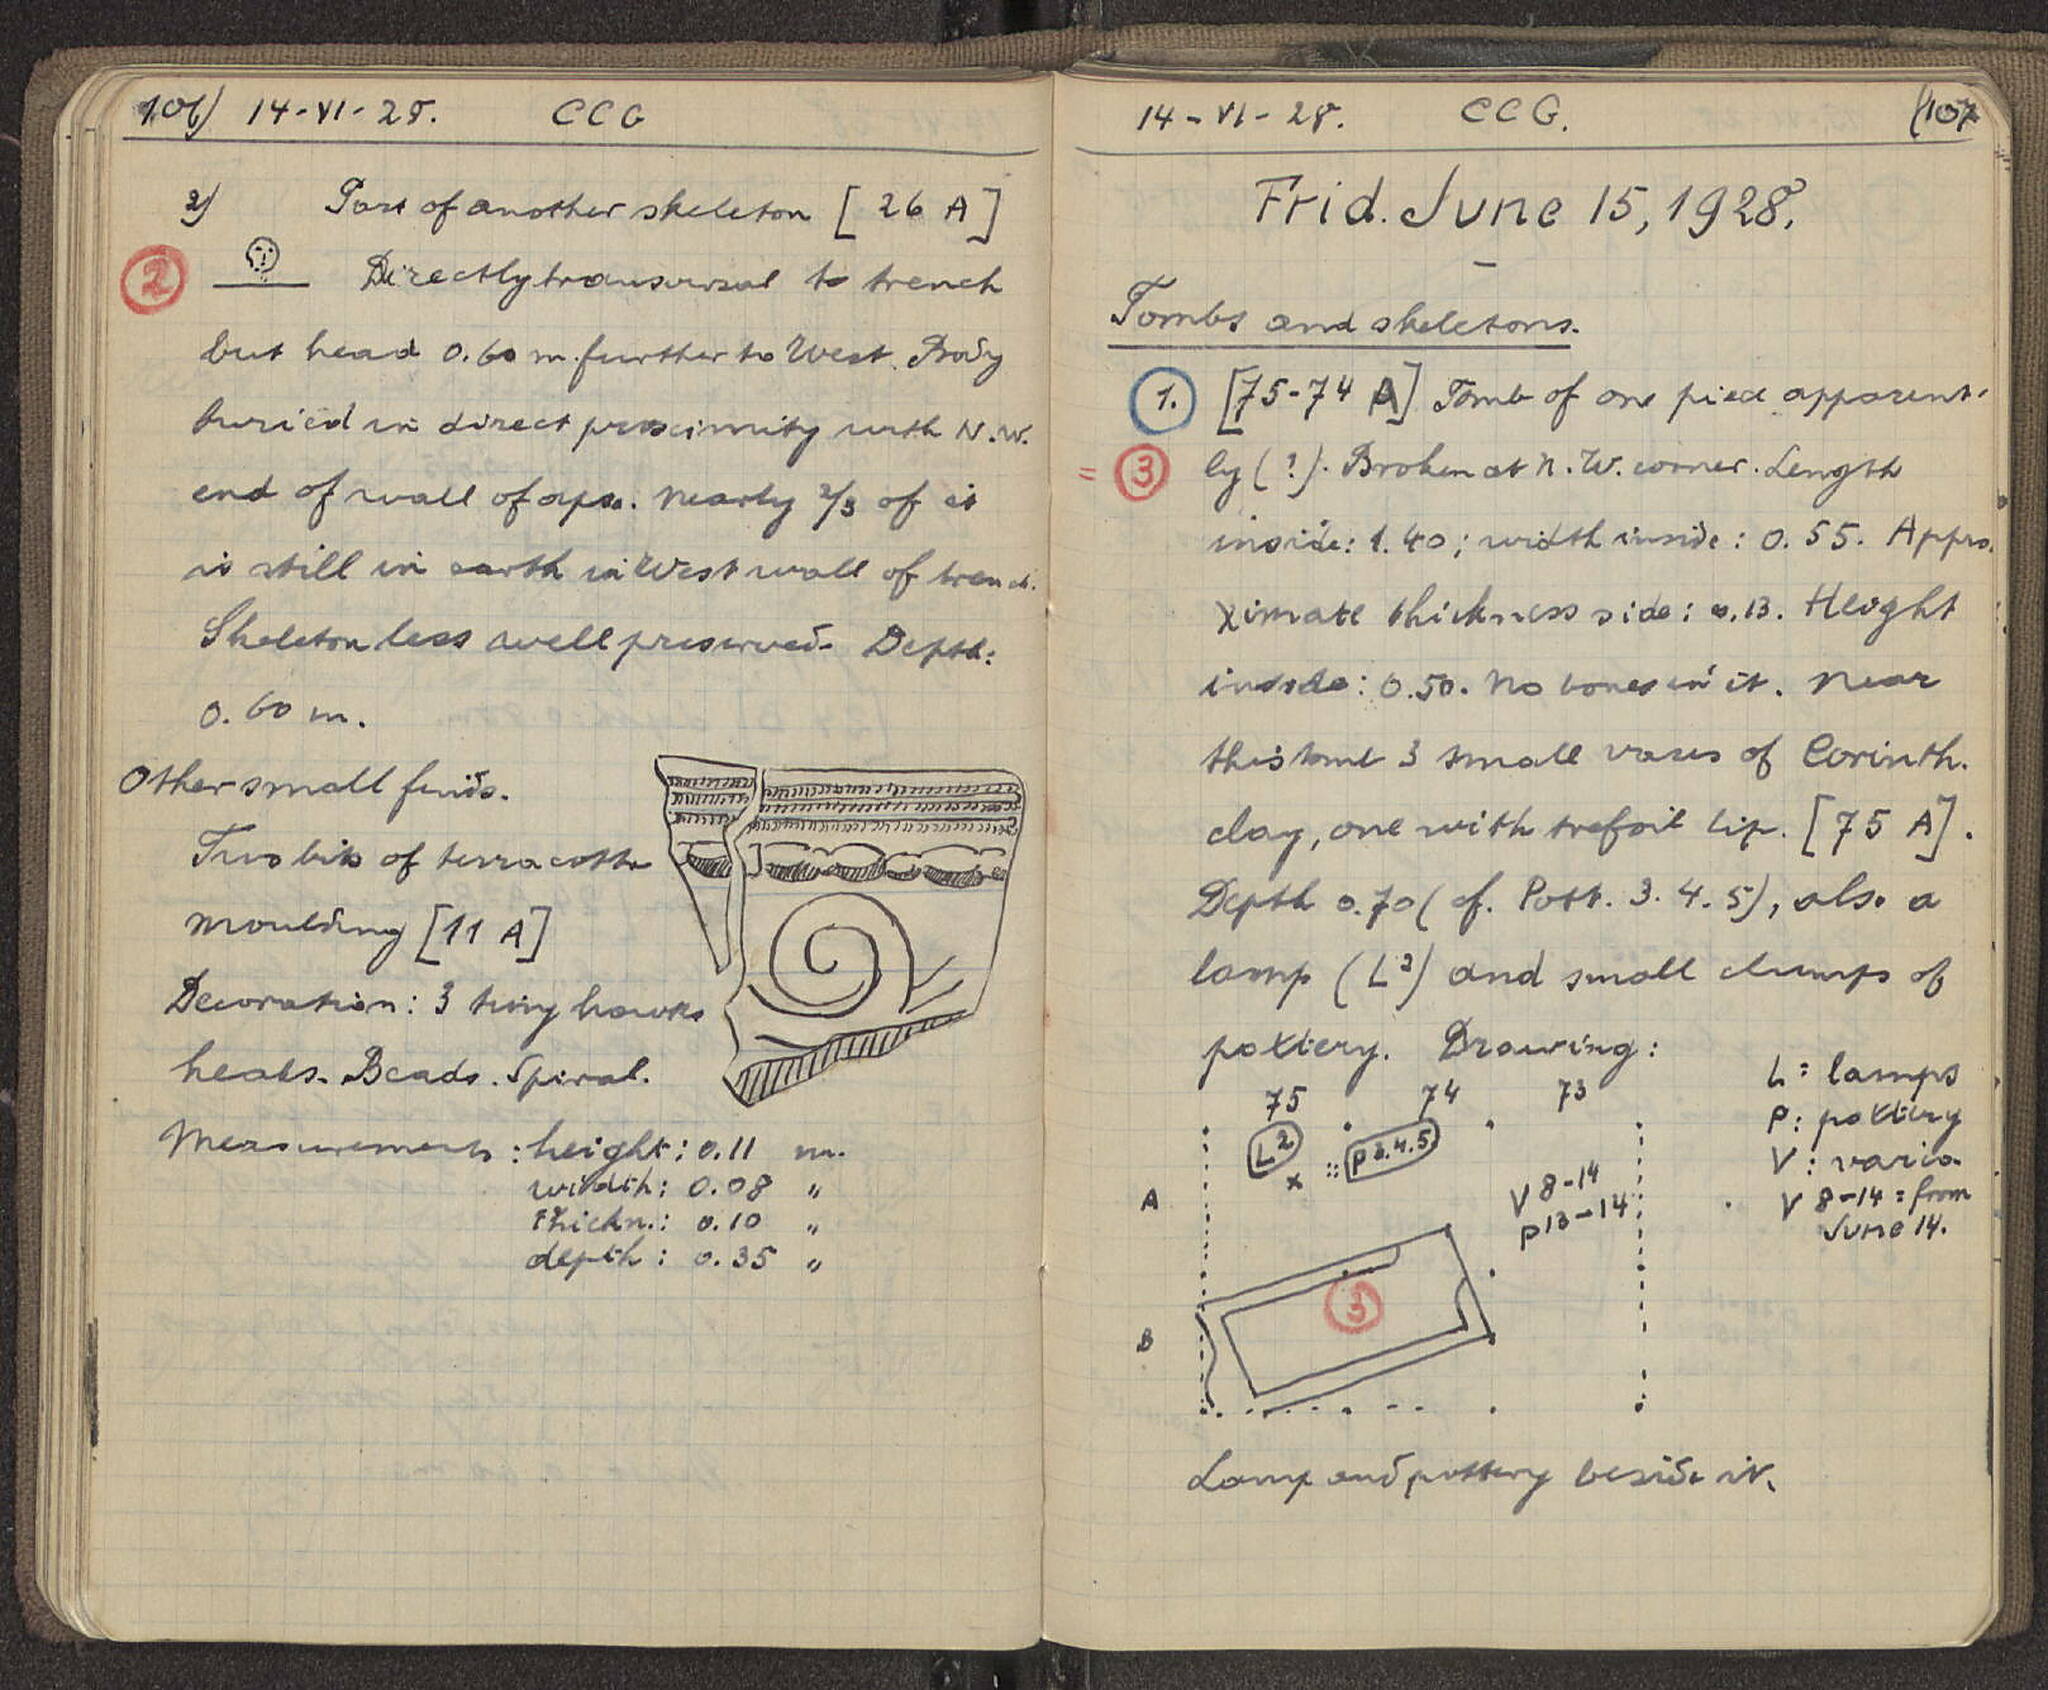 106) 14-VI-28. CCG
2) Part of another skeleton [26 A]
2 Directly transversal to trench
but head 0.60 m. further to West. Body
buried in direct proximity with N.W.
end of wall of apse. Nearly 2/3 of it
is still in earth in West wall of trench.
Skeleton less well preserved. Depth:
0.60 m.
Other small finds.
Two bits of terracotta
moulding [11 A]
Decoration: 3 tiny hawks
heads. Beads. Spiral.
Measurements: height: 0.11 m.
width: 0.08 "
thickn.: 0.10 "
depth: 0.35 "
14-VI-28. CCG. (107
Frid. June 15, 1928.
Tombs and skeletons.
1. [75-74 A] Tomb of one piece apparent-
= 3 ly (?). Broken at N.W. corner. Length
inside: 1.40; width inside: 0.55. Appro-
ximate thickness side: 0.13. Height
inside: 0.50. No bones in it. Near
this tomb 3 small vases of Corinth.
clay, one with trefoil lip. [75 A].
Depth 0.70 (cf. Pott. 3. 4. 5), also a
lamp (L2) and small clumps of
pottery. Drawing:
L = lamps
P: pottery
V: varia
V 8-14 = from
June 14.
75 74 73
L2 x :: P 3.4.5
A
V 8-14
P 13-14
B
3
Lamp and pottery beside it.